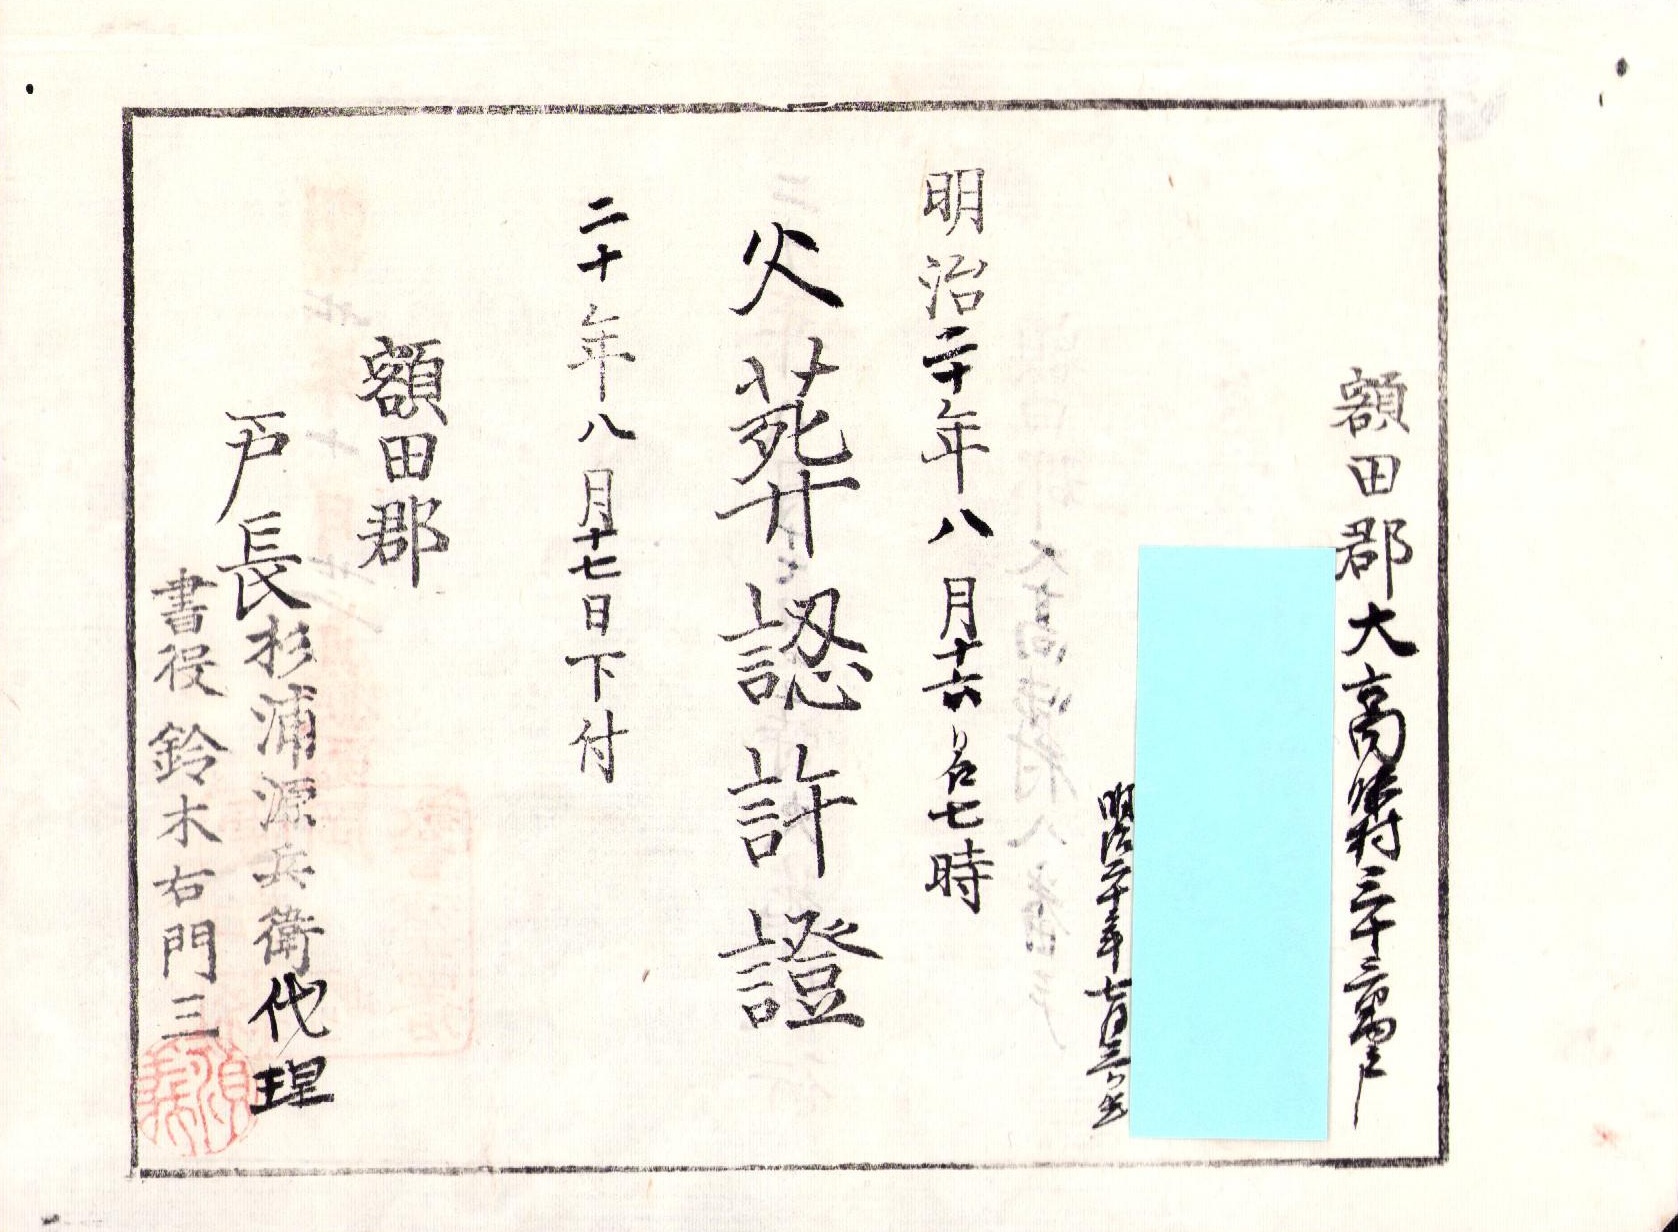 額田郡大高味村三十三番戸
明治二十年七月三日生
明治二十年八月十六日午后七時
火葬認許證
二十年八月十七日下付
額田郡
戸長杉浦源兵衛代理
書役鈴木右門三